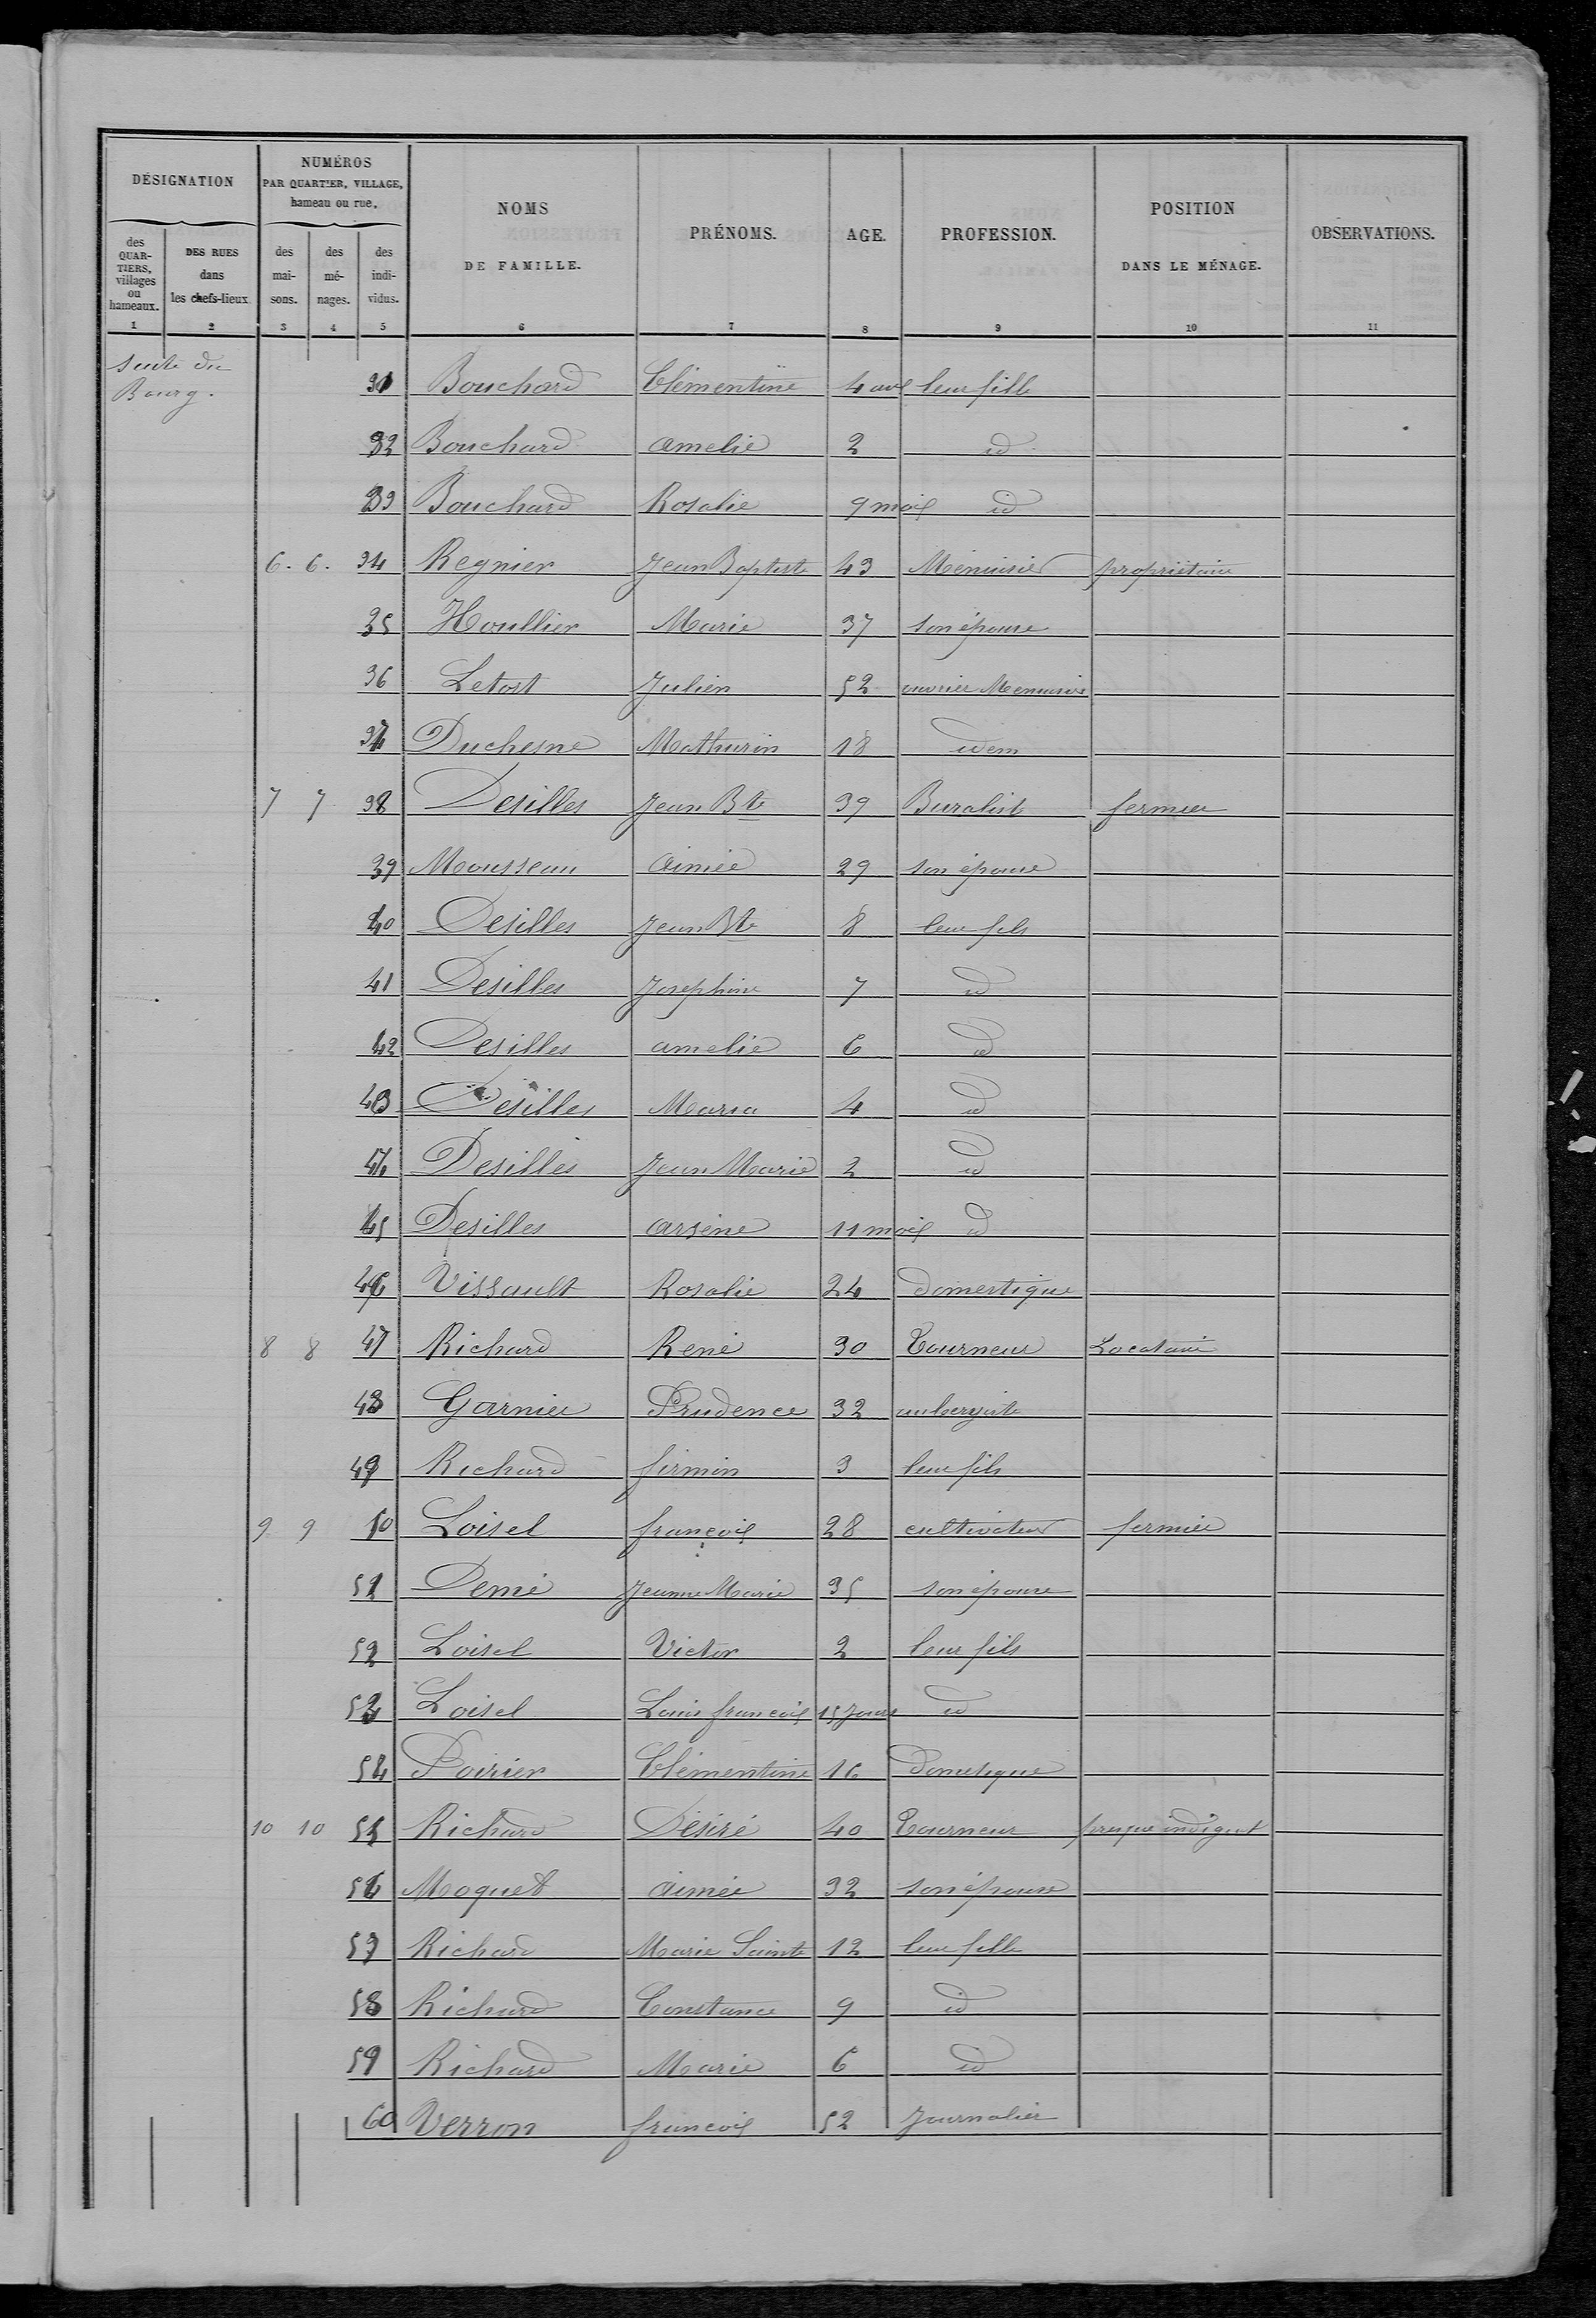 DÉSIGNATION
NUMÉROS
PAR QUARTIER, VILLAGE,
hameau ou rue.
NOMS
DE FAMILLE.
PRÉNOMS.
AGE.
PROFESSION.
POSITION
DANS LE MÉNAGE.
OBSERVATIONS.
des QUAR-TIERS, villages ou hameaux.
DES RUES dans les chefs-lieux
des mai-sons.
des mé-nages.
des indi-vidus.
1 2 3 4 5 6 7 8 9 10 11
Suite du
Bourg.
31 Bouchard Clémentine 4 ans leur fille
32 Bouchard amelie 2 id
33 Bouchard Rosalie 9 mois id
6. 6. 34 Regnier Jean Baptiste 43 Menuisier propriétaire
35 Houllier Marie 37 son épouse
36 Letost Julien 52 ouvrier Menuisier
37 Duchesne Mathurin 18 idem
7 7 38 Desilles Jean Bte 39 Buraliste fermier
39 Mousseau Aimée 29 son épouse
40 Desilles Jean Bte 8 leur fils
41 Desilles Josephine 7 id
42 Desilles amelie 6 id
43 Desilles Maria 4 id
44 Desilles Jean Marie 2 id
45 Desilles arsène 11 mois id
46 Vissault Rosalie 24 Domestique
8 8 47 Richard René 30 Tourneur Locataire
48 Garnier Prudence 32 aubergiste
49 Richard firmin 3 leur fils
9 9 50 Loisel françois 28 cultivateur fermier
51 Demé Jeanne Marie 35 son épouse
52 Loisel Victor 2 leur fils
53 Loisel Louis françois 15 jours id
54 Poirier Clémentine 16 Domestique
10 10 55 Richard Désiré 40 Tourneur presque indigent
56 Moquet Aimée 32 son épouse
57 Richard Marie Sainte 12 leur fille
58 Richard Constance 9 id
59 Richard Marie 6 id
60 Verron françois 52 Journalier